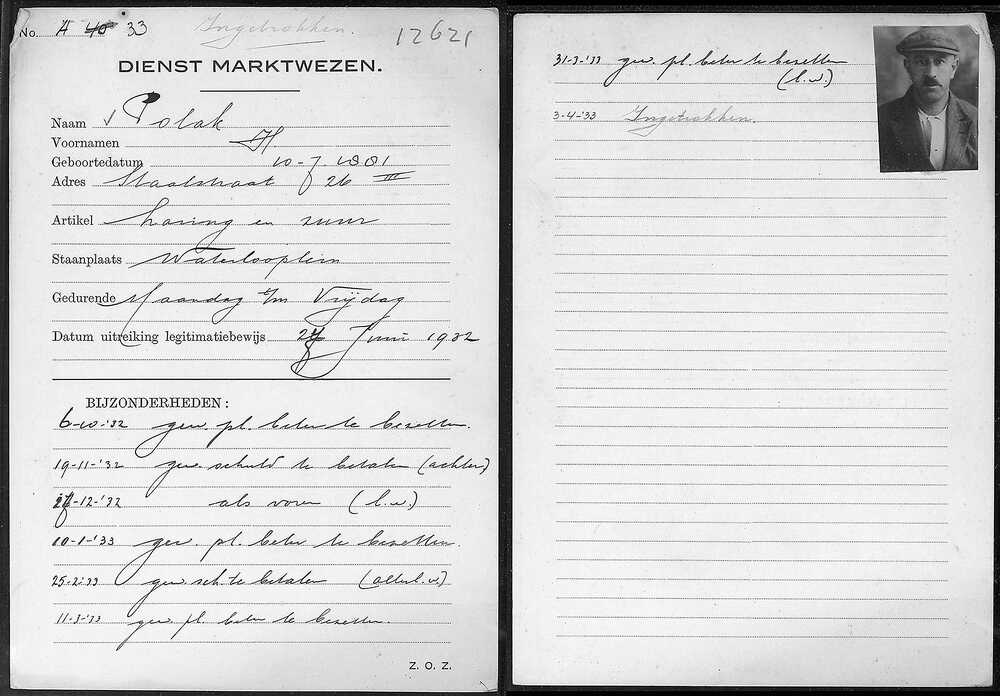 No. A 40 33 Ingetrokken. 12621
DIENST MARKTWEZEN.
Naam Polak
Voornamen H
Geboortedatum 10-7-1881
Adres Staalstraat 26 III
Artikel haring en zuur
Staanplaats Waterlooplein
Gedurende Maandag t/m Vrijdag
Datum uitreiking legitimatiebewijs 27 Juni 1932
BIJZONDERHEDEN:
6-10-'32 gew. pl. beter te bezetten.
19-11-'32 gew. schuld te betalen (achter)
27-12-'32 als voren (l.w.)
10-1-'33 gew. pl. beter te bezetten.
25-2-'33 gew. sch. te betalen (allerl. w.)
11-3-'33 gew. pl. beter te bezetten.
Z. O. Z.
31-3-'33 gew. pl. beter te bezetten
(l.w.)
3-4-'33 Ingetrokken.